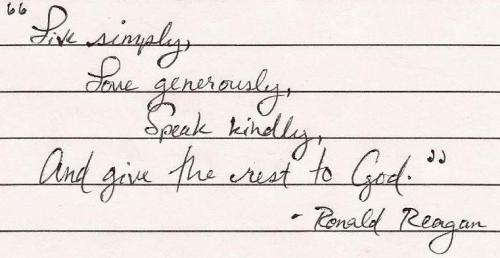 "Live simply,
Love generously,
Speak kindly,
And give the rest to God."
- Ronald Reagan